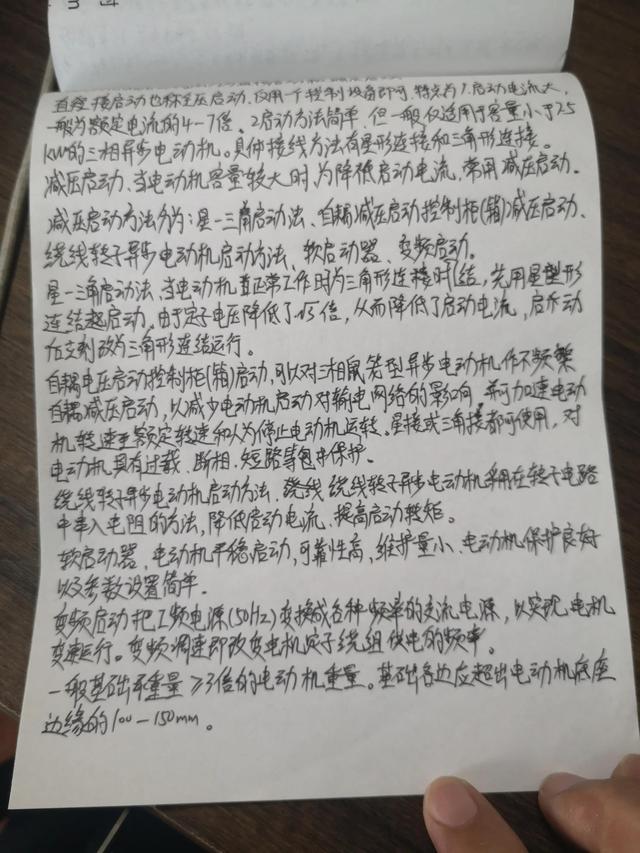 直接接启动也称全压启动.仅用一个控制设备即可.特点为1.启动电流大,
一般为额定电流的4-7倍。2启动方法简单.但一般仅适用于容量小于7.5
KW的三相异步电动机。具体接线方法有星形连接和三角形连接。
减压启动、当电动机容量较大时,为降低启动电流,常用减压启动.
减压启动方法分为:星-三角启动法、自耦减压启动控制柜(箱)减压启动、
绕线转子异步电动机启动方法、软启动器、变频启动.
星-三角启动法、当电动机在正常工作时为三角形连接时结,先用星型形
连结起启动,由于定子电压降低了√3倍,从而降低了启动电流,启动
左刻改为三角形连结运行。
自耦电压启动控制柜(箱)启动,可以对三相鼠笼型异步电动机作不频繁
自耦减压启动,以减少电动机启动对输电网络的影响,并可加速电动
机转速至额定转速和人为停止电动机运转。星接或三角接都可使用,对
电动机具有过载、断相、短路等包中保护。
绕线转子异步电动机启动方法.绕线 绕线转子异步电动机采用在转子电路
中串入电阻的方法,降低启动电流、提高启动转矩。
软启动器、电动机平稳启动,可靠性高,维护量小、电动机保护良好
以及参数设置简单.
变频启动把工频电源(50Hz)变换成各种频率的交流电源,以实现电机
变速运行。变频调速即改变电机定子绕组供电的频率。
一般基础承重量≥3倍的电动机重量。基础各边应超出电动机底座
边缘的100-150mm。